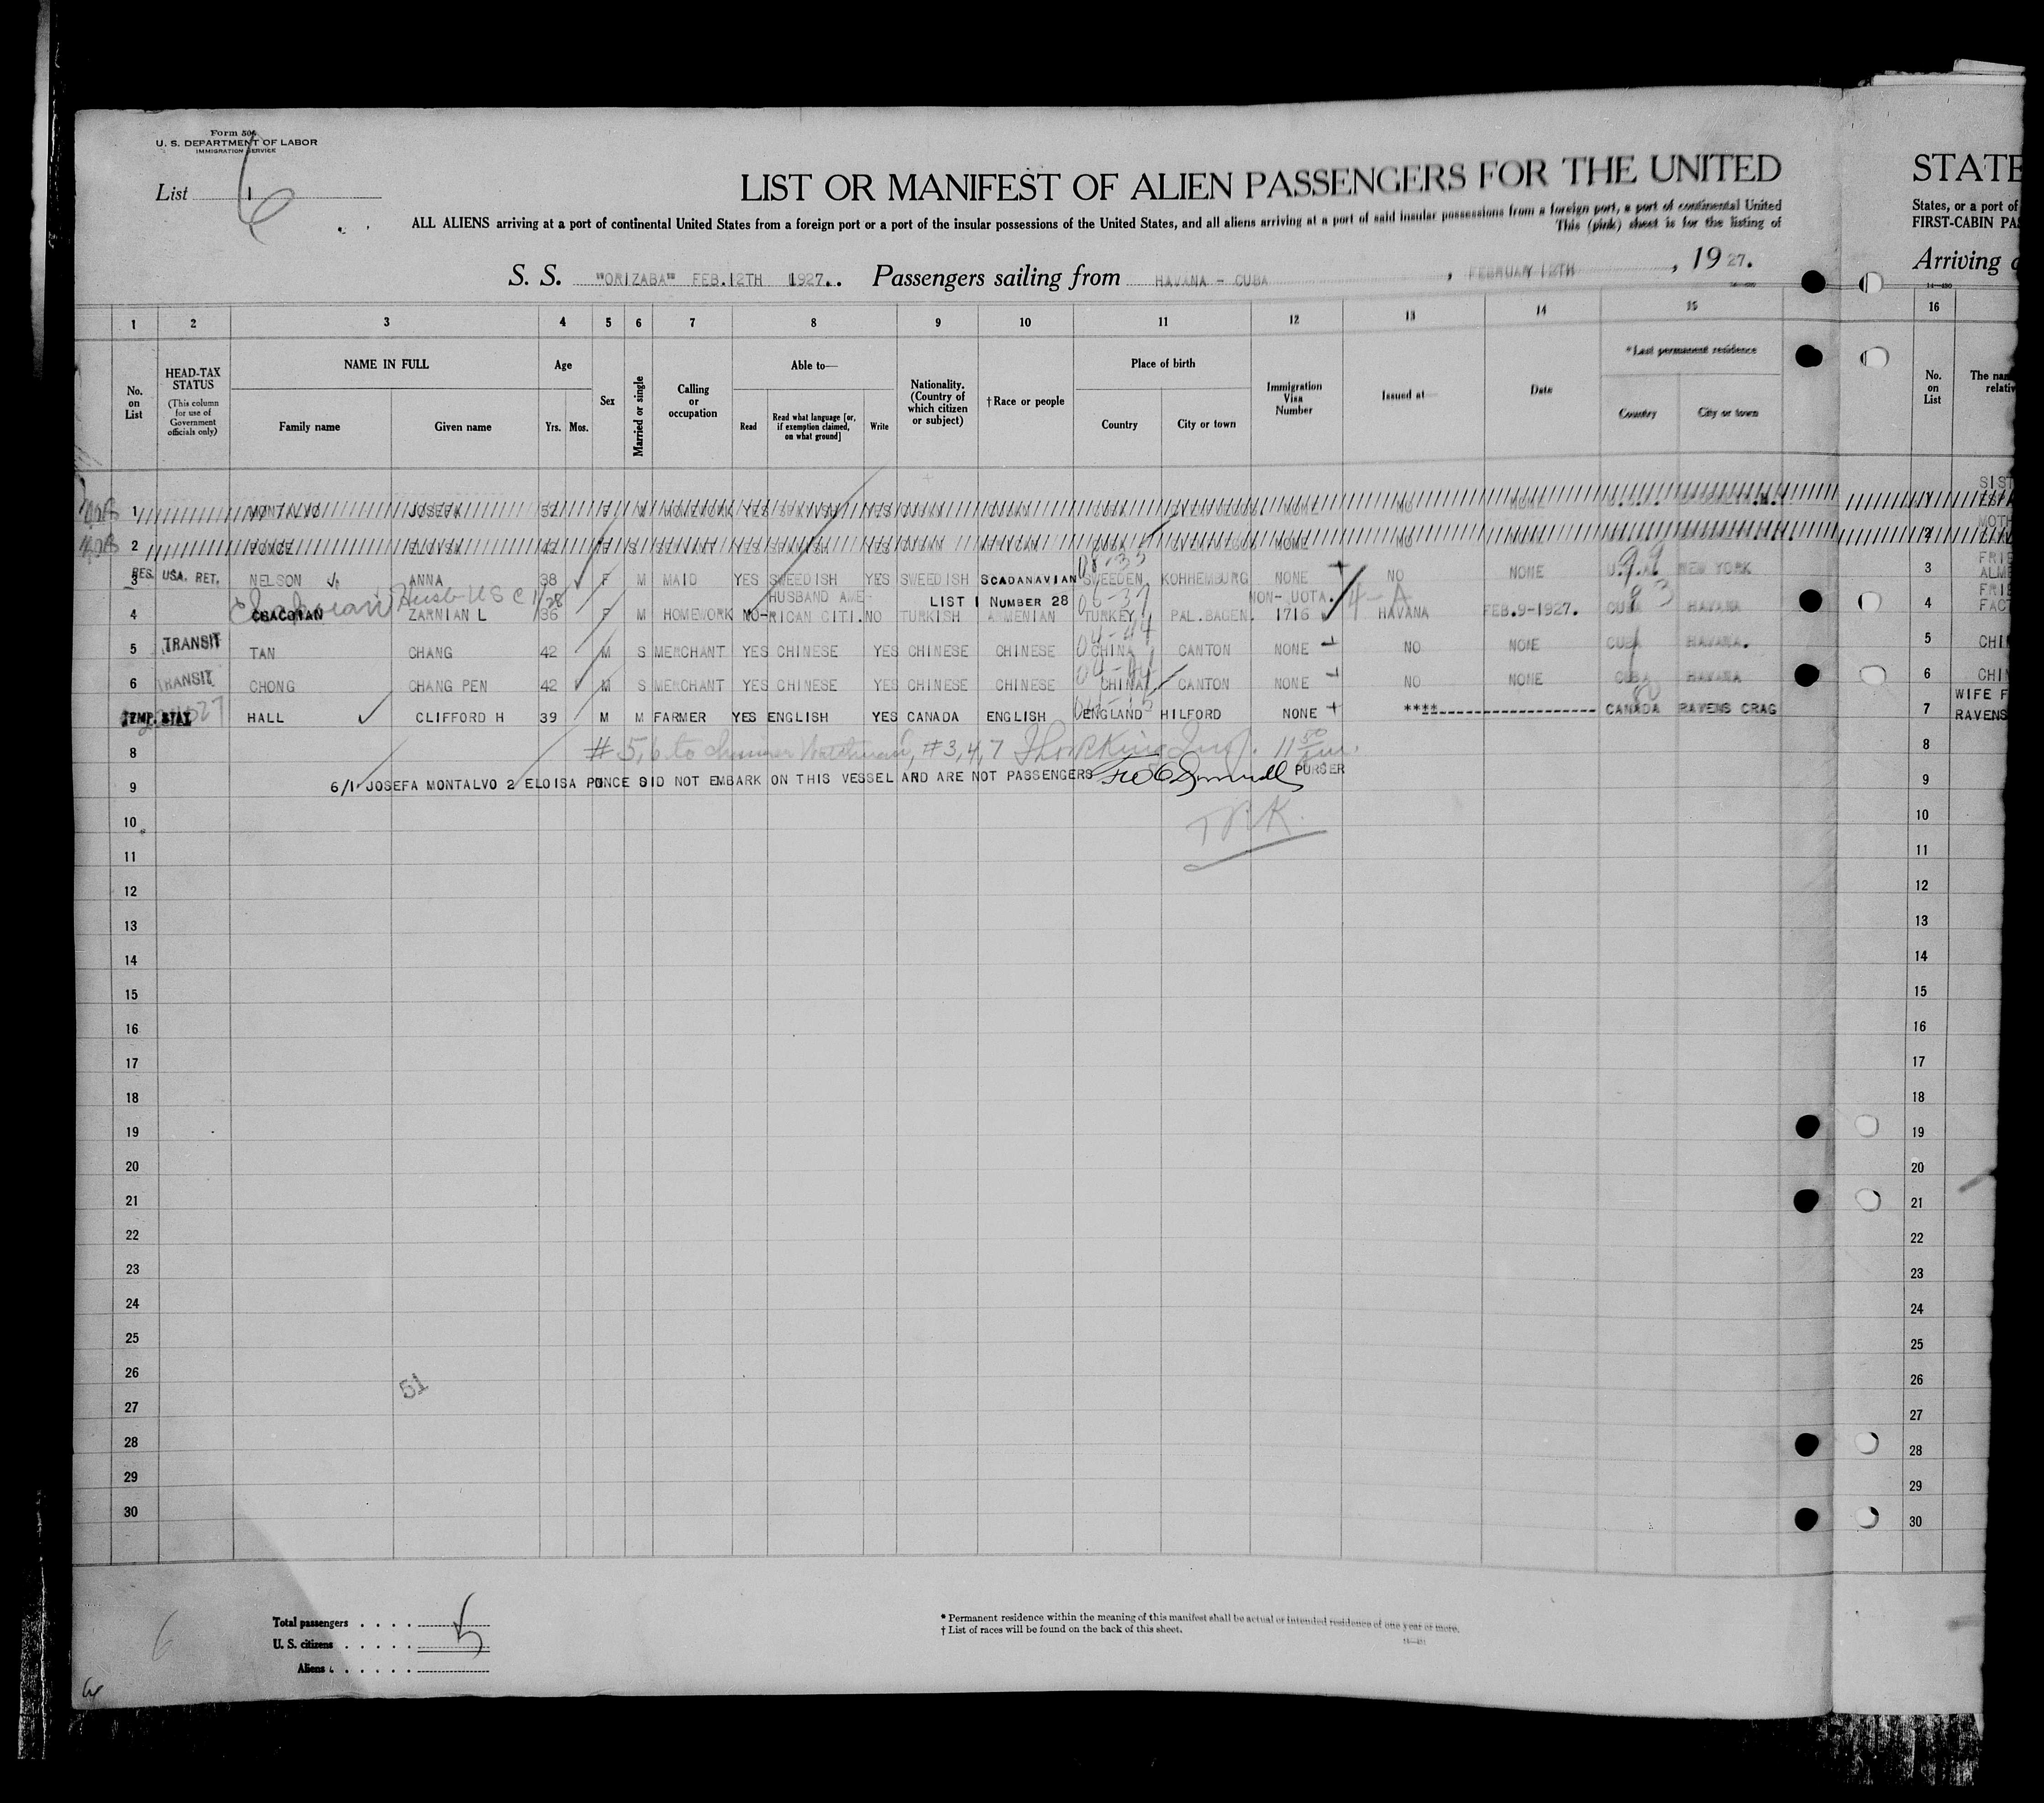 Form 506
U. S. DEPARTMENT OF LABOR
IMMIGRATION SERVICE
List 1
6
LIST OR MANIFEST OF ALIEN PASSENGERS FOR THE UNITED
STATE
ALL ALIENS arriving at a port of continental United States from a foreign port or a port of the insular possessions of the United States, and all aliens arriving at a port of said insular possessions from a foreign port, a port of continental United
States, or a port of
This (pink) sheet is for the listing of
FIRST-CABIN PA
S. S. "ORIZABA" FEB.12TH 1927.. Passengers sailing from HAVANA - CUBA , FEBRUARY 12TH , 19 27.
Arriving
1 2 3 4 5 6 7 8 9 10 11 12 13 14 15 16
No. on List
HEAD-TAX STATUS (This column for use of Government officials only)
NAME IN FULL
Family name Given name
Age
Yrs. Mos.
Sex
Married or single
Calling or occupation
Able to—
Read Read what language [or, if exemption claimed, on what ground] Write
Nationality. (Country of which citizen or subject)
† Race or people
Place of birth
Country City or town
Immigration Visa Number
Issued at—
Date
*Last permanent residence
Country City or town
No. on List
The nam
relativ
1 MONTALVO JOSEFA 52 F M HOMEWORK YES SPANISH YES CUBAN CUBAN CUBA NONE NO NONE
SIST
2 PONCE ELOISA 42 F S SERVANT YES SPANISH YES CUBAN AFRICAN CUBA NONE NO
MOTH
RES. USA. RET.
3 NELSON ANNA 38 F M MAID YES SWEEDISH YES SWEEDISH SCADANAVIAN SWEEDEN KOHHEMBURG NONE NO NONE U.S.A NEW YORK 3 FRIE
ALME
Husb USC 28 HUSBAND AME- LIST 1 NUMBER 28 06-37 NON-QUOTA. 4-A
FRIE
4 CHACOPAN ZARNIAN L 36 F M HOMEWORK NO-RICAN CITI. NO TURKISH ARMENIAN TURKEY PAL.BAGEN. 1716 HAVANA FEB.9-1927. CUBA HAVANA 4 FACT
5 TRANSIT TAN CHANG 42 M S MERCHANT YES CHINESE YES CHINESE CHINESE CHINA CANTON NONE NO NONE CUBA HAVANA. 5 CHI
6 TRANSIT CHONG CHANG PEN 42 M S MERCHANT YES CHINESE YES CHINESE CHINESE CHINA CANTON NONE NO NONE CUBA HAVANA 6 CHI
WIFE F
7 TEMP. STAY HALL CLIFFORD H 39 M M FARMER YES ENGLISH YES CANADA ENGLISH ENGLAND HILFORD NONE **** CANADA RAVENS CRAG 7 RAVENS
8 # 5,6 to Chinese Watchman, # 3,4,7 11 50 am. 8
PURSER
9 6/1 JOSEFA MONTALVO 2 ELOISA PONCE DID NOT EMBARK ON THIS VESSEL AND ARE NOT PASSENGERS 9
10 TRK. 10
11 11
12 12
13 13
14 14
15 15
16 16
17 17
18 18
19 19
20 20
21 21
22 22
23 23
24 24
25 25
26 26
51
27 27
28 28
29 29
30 30
Total passengers . . . . 5
U. S. citizens . . . . .
Aliens . . . . . .
* Permanent residence within the meaning of this manifest shall be actual or intended residence of one year or more.
† List of races will be found on the back of this sheet.
6